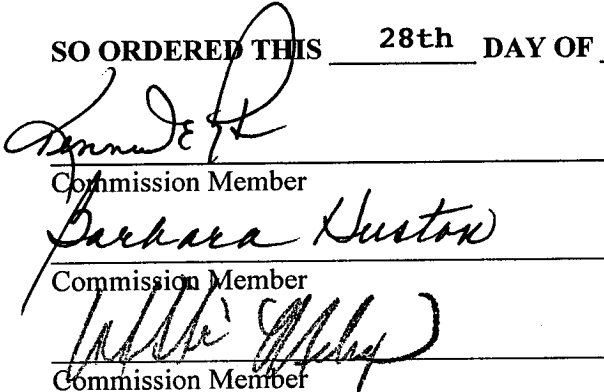 SO ORDERED THIS 28th DAY OF
Commission Member
Barbara Huston
Commission Member
Commission Member